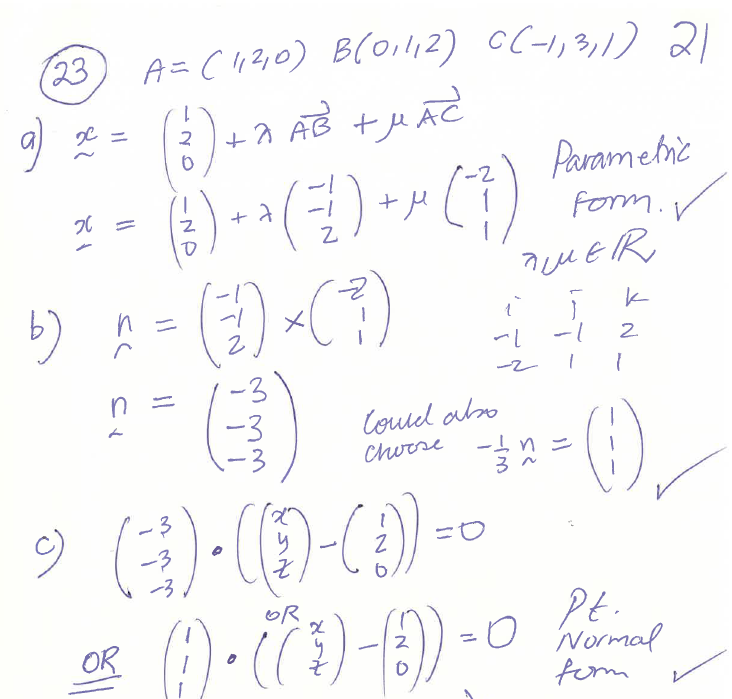 (23) A = (1,2,0) B(0,1,2) C(-1,3,1) 21
a) x = (1 2 0) + λ AB + μ AC
x = (1 2 0) + λ (-1 -1 2) + μ (-2 1 1) Parametric form. ✓
λ, μ ∈ ℝ
b) n = (-1 -1 2) × (-2 1 1)
i j k
-1 -1 2
-2 1 1
n = (-3 -3 -3) Could also choose -1/3 n = (1 1 1) ✓
c) (-3 -3 -3) • ((x y z) - (1 2 0)) = 0
OR
OR (1 1 1) • ((x y z) - (1 2 0)) = 0 Pt. Normal form ✓